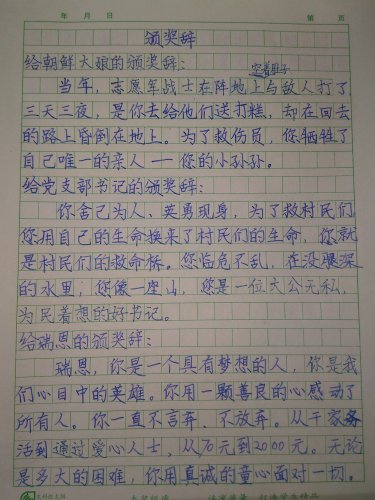 年 月 日 第 页
颁奖辞
给朝鲜大娘的颁奖辞:
空着肚子
当年,志愿军战士在阵地上与敌人打了
三天三夜,是你去给他们送打糕,却在回去
的路上昏倒在地上。为了救伤员,您牺牲了
自己唯一的亲人——您的小孙孙。
给党支部书记的颁奖辞:
你舍己为人、英勇现身,为了救村民们
您用自己的生命换来了村民们的生命,您就
是村民们的救命桥。您临危不乱,在没腿深
的水里;您像一座山,您是一位大公无私,
为民着想的好书记。
给瑞恩的颁奖辞:
瑞恩,你是一个具有梦想的人,你是我
们心目中的英雄。你用一颗善良的心感动了
所有人。你一直不言弃、不放弃。从干家务
活到通过爱心人士,从70元到2000元。无论
是多大的困难,你用真诚的童心面对一切。